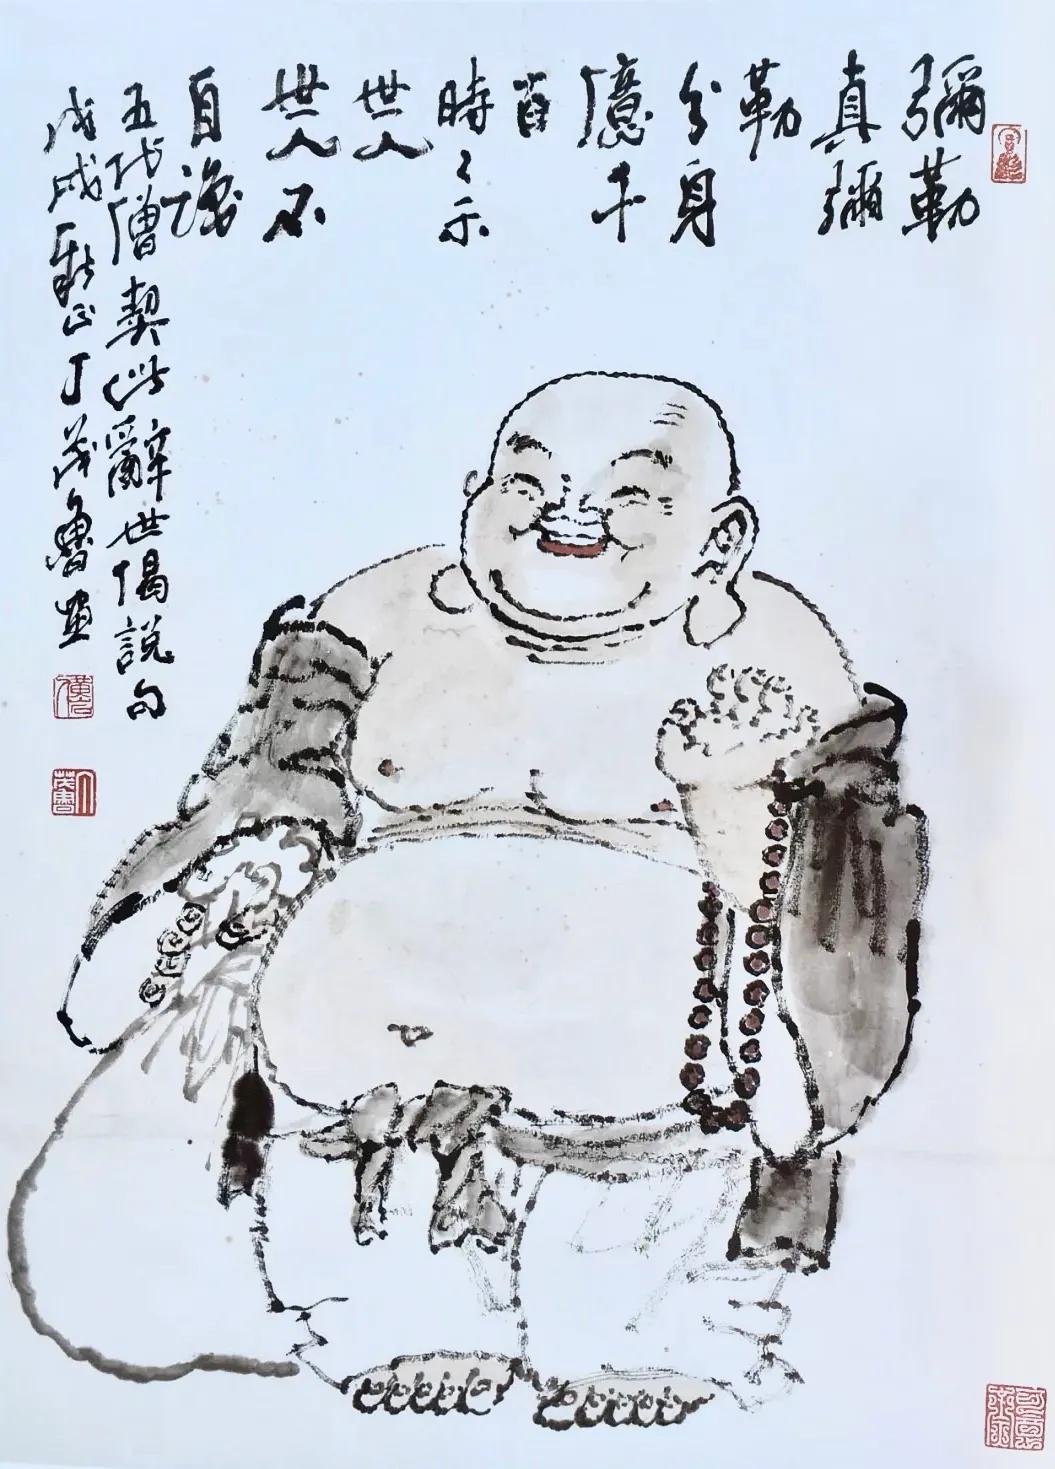 彌勒
真彌
勒
分身
億千
百
時〻示
世人
世人不
自識
五代僧契此辭世偈說句
戊戌新正丁茂魯畫
丁茂魯